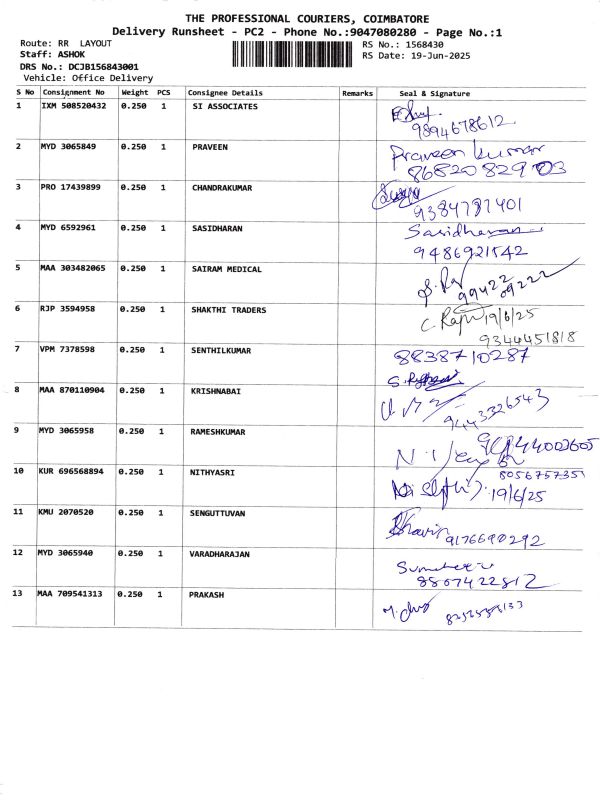 THE PROFESSIONAL COURIERS, COIMBATORE
Delivery Runsheet - PC2 - Phone No.:9047080280 - Page No.:1
Route: RR LAYOUT
RS No.: 1568430
Staff: ASHOK
RS Date: 19-Jun-2025
DRS No.: DCJB156843001
Vehicle: Office Delivery
S No Consignment No Weight PCS Consignee Details Remarks Seal & Signature
1 IXM 508520432 0.250 1 SI ASSOCIATES
9894678612
2 MYD 3065849 0.250 1 PRAVEEN Praveen kumar
8682082903
3 PRO 17439899 0.250 1 CHANDRAKUMAR
9384787401
4 MYD 6592961 0.250 1 SASIDHARAN Sasidharan
9486921542
5 MAA 303482065 0.250 1 SAIRAM MEDICAL
99422 09222
6 RJP 3594958 0.250 1 SHAKTHI TRADERS C. Raju 19/6/25
9344451818
7 VPM 7378598 0.250 1 SENTHILKUMAR 8838710287
8 MAA 870110904 0.250 1 KRISHNABAI
9443326543
9 MYD 3065958 0.250 1 RAMESHKUMAR
10 KUR 696568894 0.250 1 NITHYASRI 8056757351
19/6/25
11 KMU 2070520 0.250 1 SENGUTTUVAN
9176690292
12 MYD 3065940 0.250 1 VARADHARAJAN
8807422812
13 MAA 709541313 0.250 1 PRAKASH